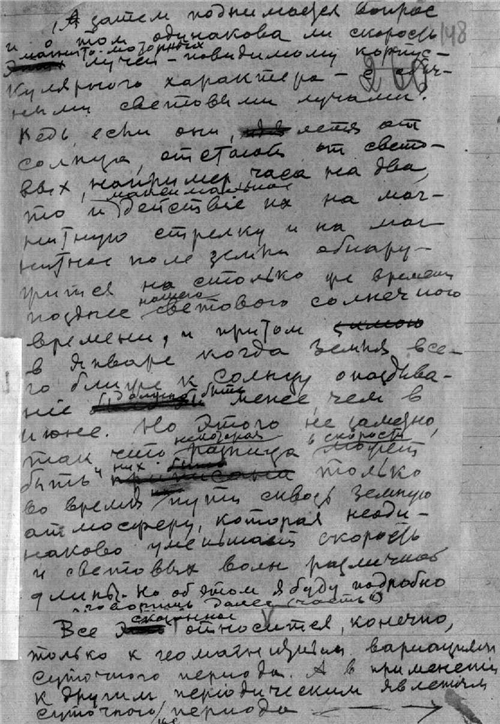 А затем поднимается вопрос
и о том одинакова ли скорость 148
магнито-моторных
лучей – повидимому корпус-
кулярного характера – с обыч-
ными световыми лучами.
Ведь, если они, летя от
солнца, отстают от свето-
вых, например часа на два,
максимальное
то и действіе их на маг-
нитную стрелку и на маг-
нитное поле земли обнару-
жится на столько же времени
нашего
позднее светового солнечного
времени, и притом зимою
в Январе когда Земля все-
го ближе к солнцу опаздыва-
ніе должно быть менее, чем в
июне. Но этого не заметно,
некоторая в скорости
так что разница может
быть у них только
во время пути сквозь земную
атмосферу, которая неоди-
наково уменьшает скорость
и световых волн различной
длины. Но об этом я буду подробно
говорить далее (часть
сказанное
Все относится, конечно,
только к геомагнитным вариациям
суточного периода. А в применении
к другим периодическим явлениям
суточного периода